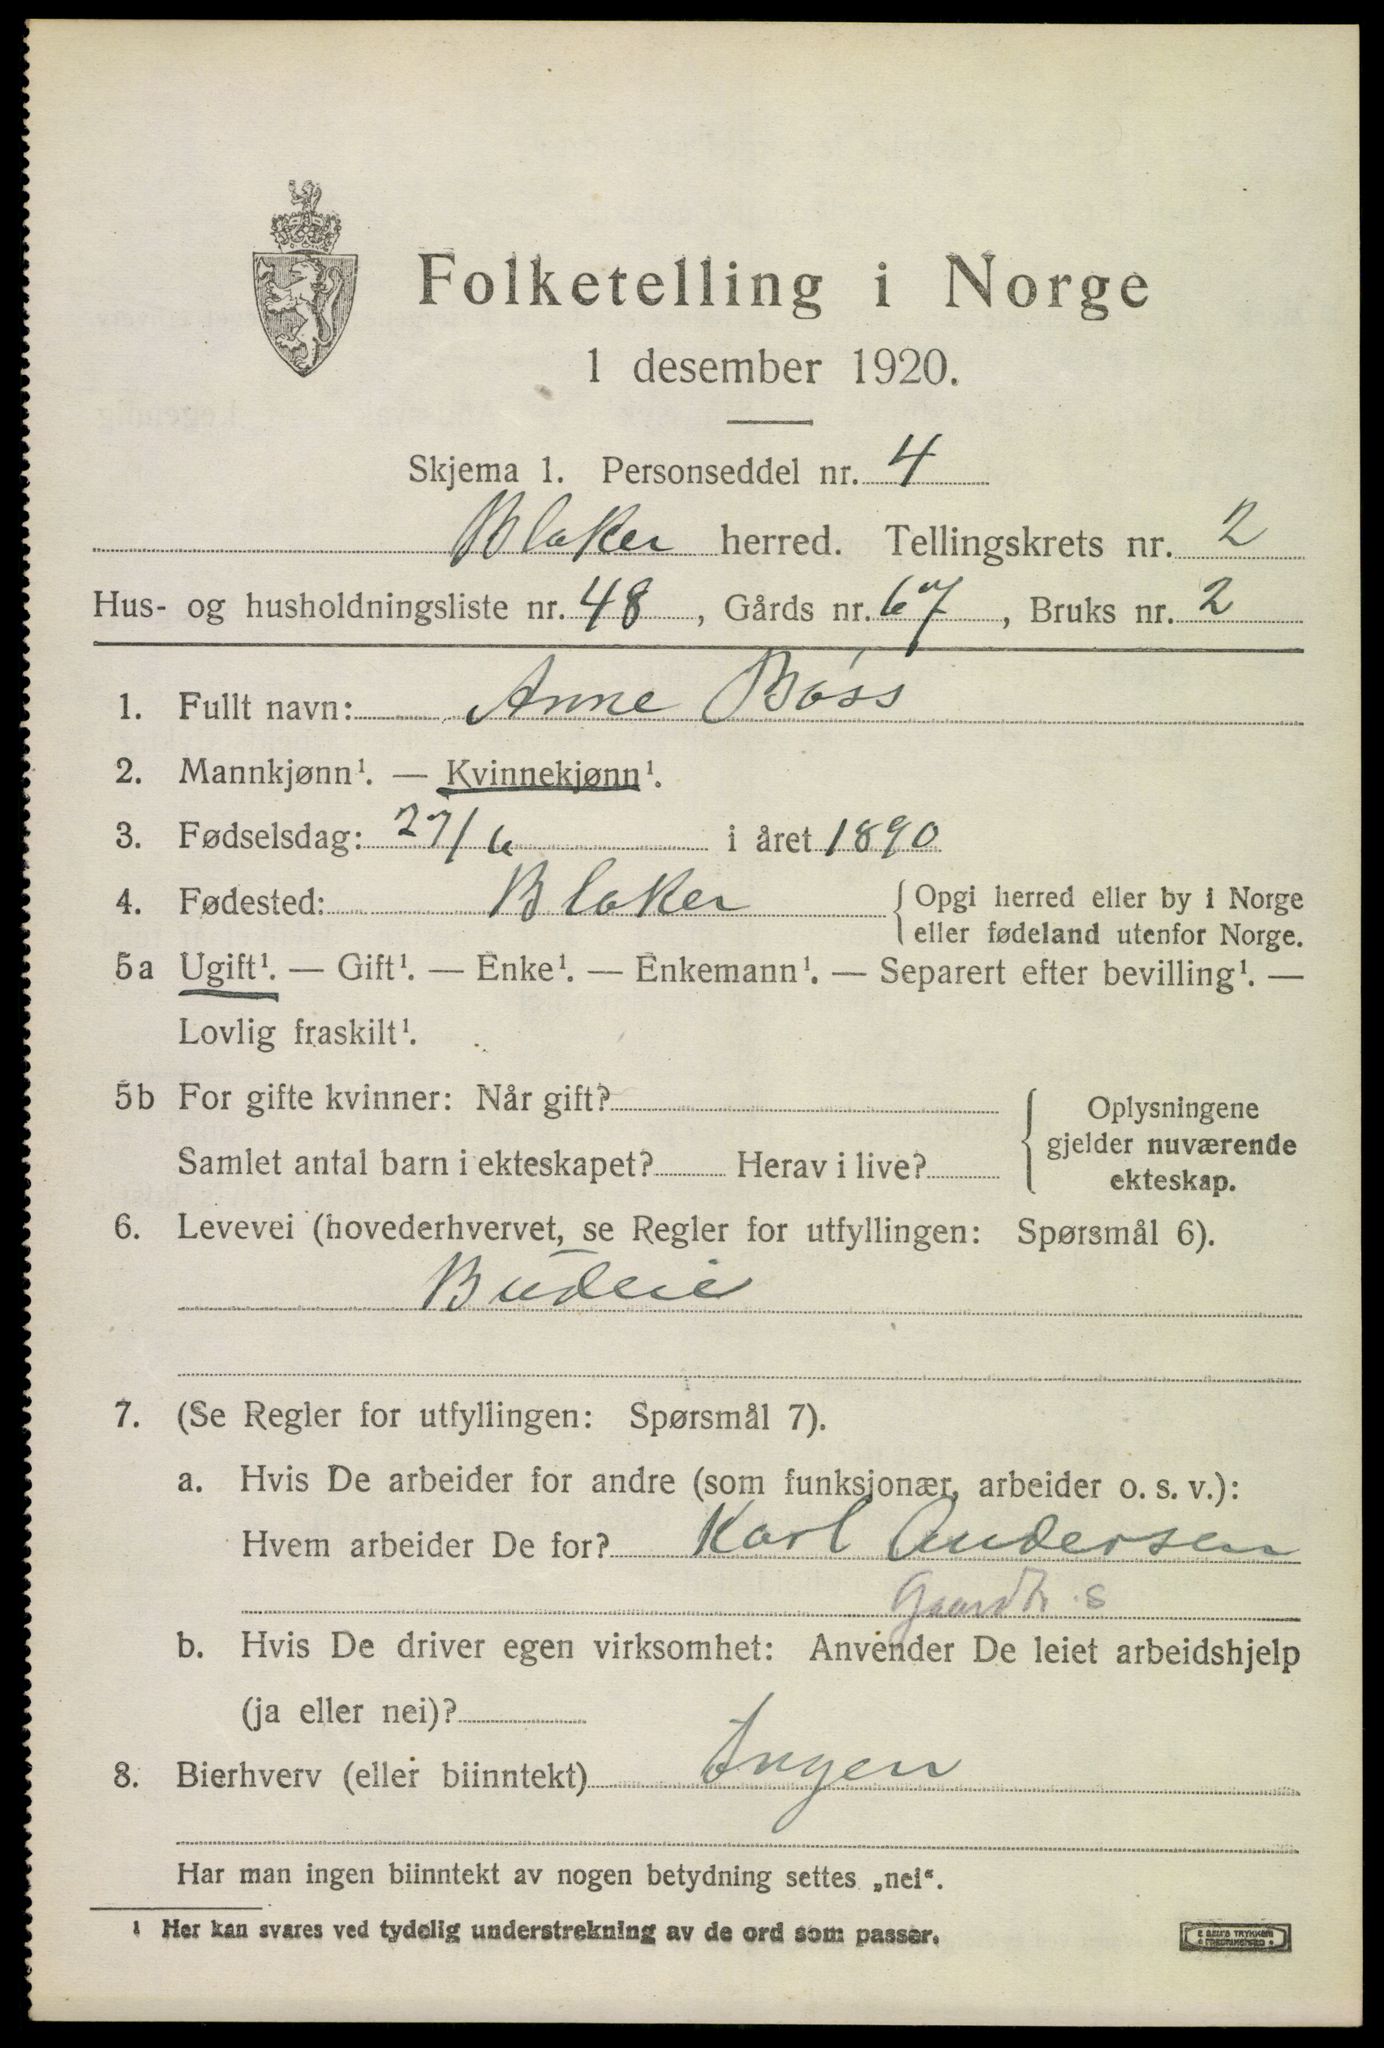 Folketelling i Norge
1 desember 1920.
Skjema 1. Personseddel nr. 4
Blaker herred. Tellingskrets nr. 2
Hus- og husholdningsliste nr. 48, Gårds nr. 67, Bruks nr. 2
1. Fullt navn: Anne Bøss
2. Mannkjønn¹. — Kvinnekjønn¹.
3. Fødselsdag: 27/6 i året 1890
4. Fødested: Blaker { Opgi herred eller by i Norge
eller fødeland utenfor Norge.
5a Ugift¹. — Gift¹. — Enke¹. — Enkemann¹. — Separert efter bevilling¹. —
Lovlig fraskilt¹.
5b For gifte kvinner: Når gift?
Samlet antal barn i ekteskapet? Herav i live?
{ Oplysningene
gjelder nuværende
ekteskap.
6. Levevei (hovederhvervet, se Regler for utfyllingen: Spørsmål 6).
Budeie
7. (Se Regler for utfyllingen: Spørsmål 7).
a. Hvis De arbeider for andre (som funksjonær, arbeider o. s. v.):
Hvem arbeider De for? Karl Andersen
Gaardbr. s
b. Hvis De driver egen virksomhet: Anvender De leiet arbeidshjelp
(ja eller nei)?
8. Bierhverv (eller biinntekt) Ingen
Har man ingen biinntekt av nogen betydning settes „nei“.
¹ Her kan svares ved tydelig understrekning av de ord som passer.